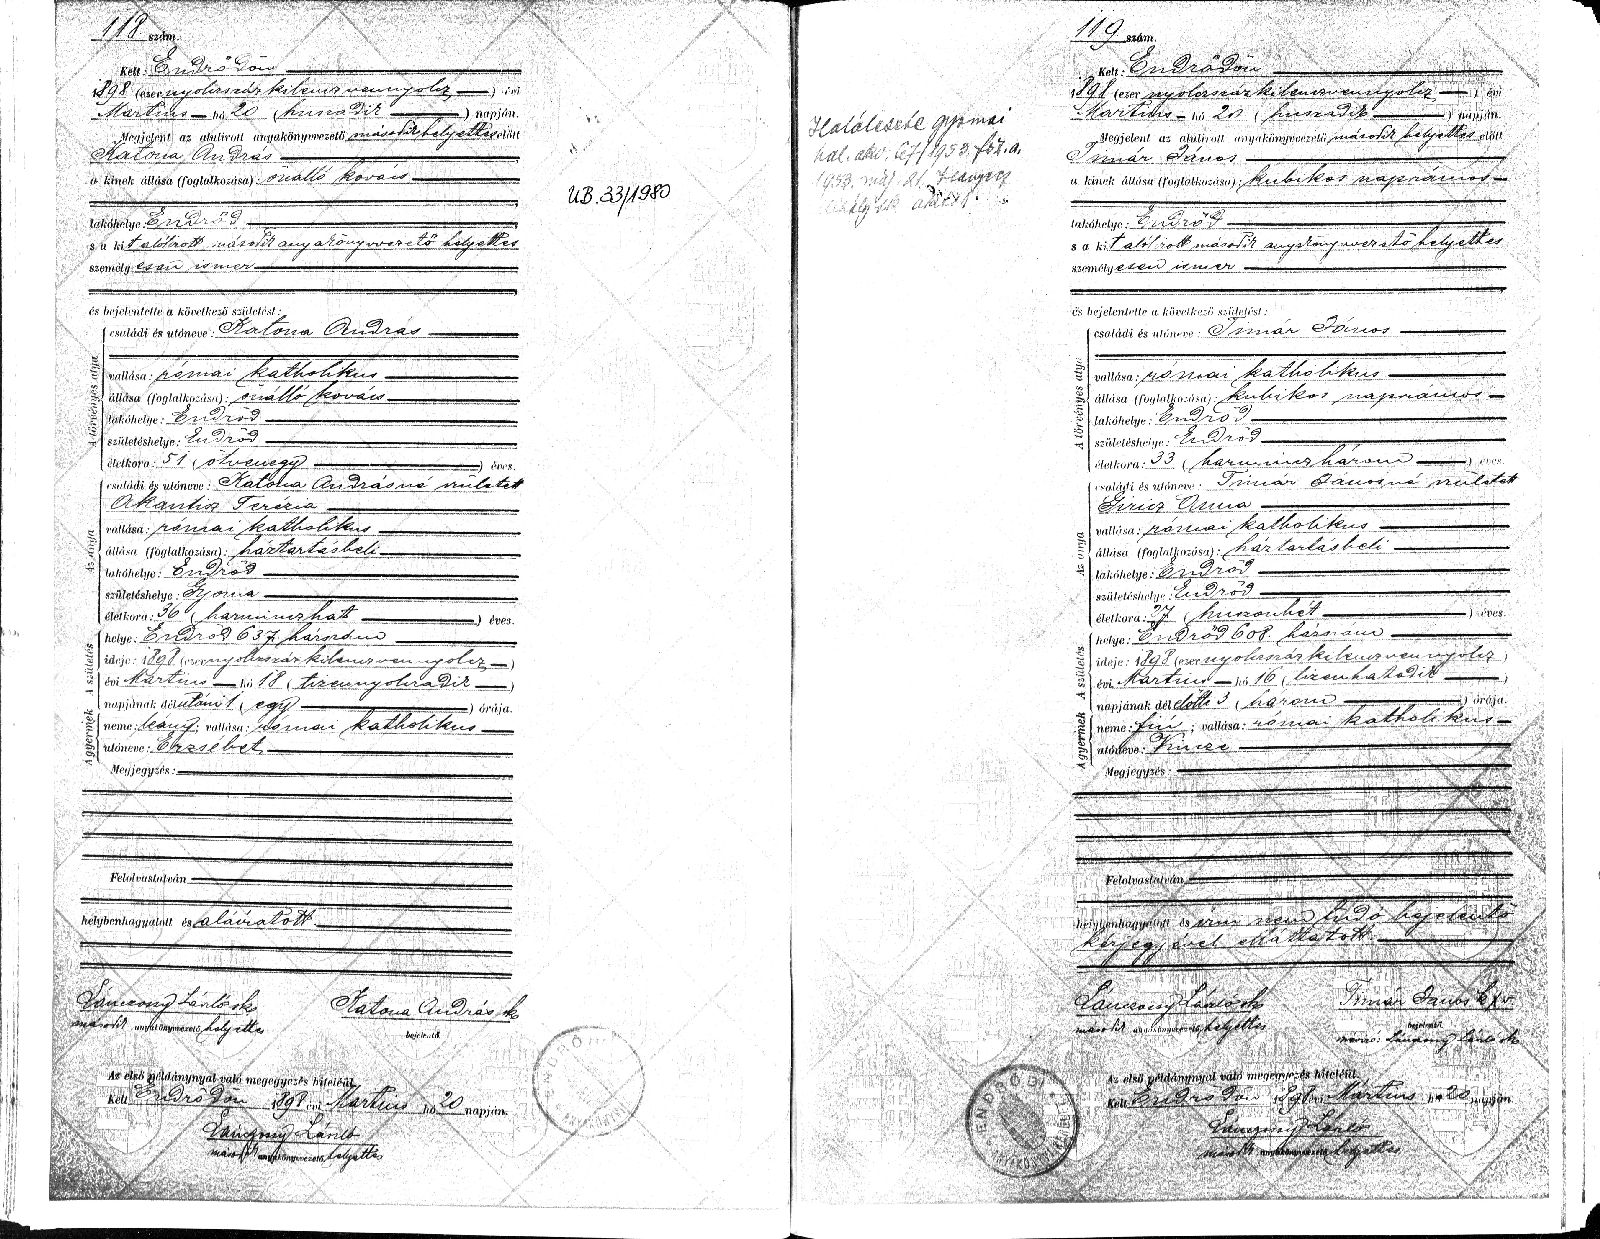 118 szám.
Kelt: Endrődön
1898 (ezer nyolcszázkilenczvennyolcz) évi
Martius hó 20 (huszadik) napján.
Megjelent az alulirott anyakönyvvezető második helyettes előtt
Katona András
a kinek állása (foglalkozása): önálló kovács
lakóhelye: Endrőd
s a kit alólirott második anyakönyvvezető helyettes
személyesen ismer
és bejelentette a következő születést:
A törvényes atya
családi és utóneve: Katona András
vallása: római katholikus
állása (foglalkozása): önálló kovács
lakóhelye: Endrőd
születéshelye: Endrőd
életkora: 51 (ötvenegy) éves.
Az anya
családi és utóneve: Katona Andrásné született
Terézia
vallása: római katholikus
állása (foglalkozása): háztartásbeli
lakóhelye: Endrőd
születéshelye: Gyoma
életkora: 36 (harminczhat) éves.
A születés
helye: Endrőd 637 házszám
ideje: 1898 (ezer nyolcszázkilenczvennyolcz)
évi Martius hó 18 (tizennyolcadik)
napjának délutáni 1 (egy) órája.
A gyermek
neme: leány; vallása: római katholikus
utóneve: Erzsébet
Megjegyzés:
Felolvastatván
helybenhagyatott és aláiratott
László sk
második anyakönyvvezető helyettes
Katona András sk
bejelentő.
Az első példánynyal való megegyezés hiteléül.
Kelt Endrődön 1898 évi Martius hó 20 napján.
László
második anyakönyvvezető helyettes
UB. 33/1980
119 szám.
Kelt: Endrődön
1898 (ezer nyolcszázkilenczvennyolcz) évi
Martius hó 20 (huszadik) napján.
Megjelent az alulirott anyakönyvvezető második helyettes előtt
Timár János
a kinek állása (foglalkozása): kubikos napszámos
lakóhelye: Endrőd
s a kit alólirott második anyakönyvvezető helyettes
személyesen ismer
és bejelentette a következő születést:
A törvényes atya
családi és utóneve: Timár János
vallása: római katholikus
állása (foglalkozása): kubikos napszámos
lakóhelye: Endrőd
születéshelye: Endrőd
életkora: 33 (harminczhárom) éves.
Az anya
családi és utóneve: Timár Jánosné született
Giricz Anna
vallása: római katholikus
állása (foglalkozása): háztartásbeli
lakóhelye: Endrőd
születéshelye: Endrőd
életkora: 27 (huszonhét) éves.
A születés
helye: Endrőd 608 házszám
ideje: 1898 (ezer nyolcszázkilenczvennyolcz)
évi Martius hó 16 (tizenhatodik)
napjának délelőtti 3 (három) órája.
A gyermek
neme: fiú; vallása: római katholikus
utóneve: Vincze
Megjegyzés:
Felolvastatván
helybenhagyatott és irni nem tudó bejelentő
kézjegyével elláttatott
László sk
második anyakönyvvezető helyettes
Timár János
bejelentő.
László sk
Az első példánynyal való megegyezés hiteléül.
Kelt Endrődön 1898 évi Martius hó 20 napján.
László
második anyakönyvvezető helyettes
Halálesete gyomai
hal. akv. 67/1953. f. sz. a.
1953. máj. 21.
ENDRŐDI